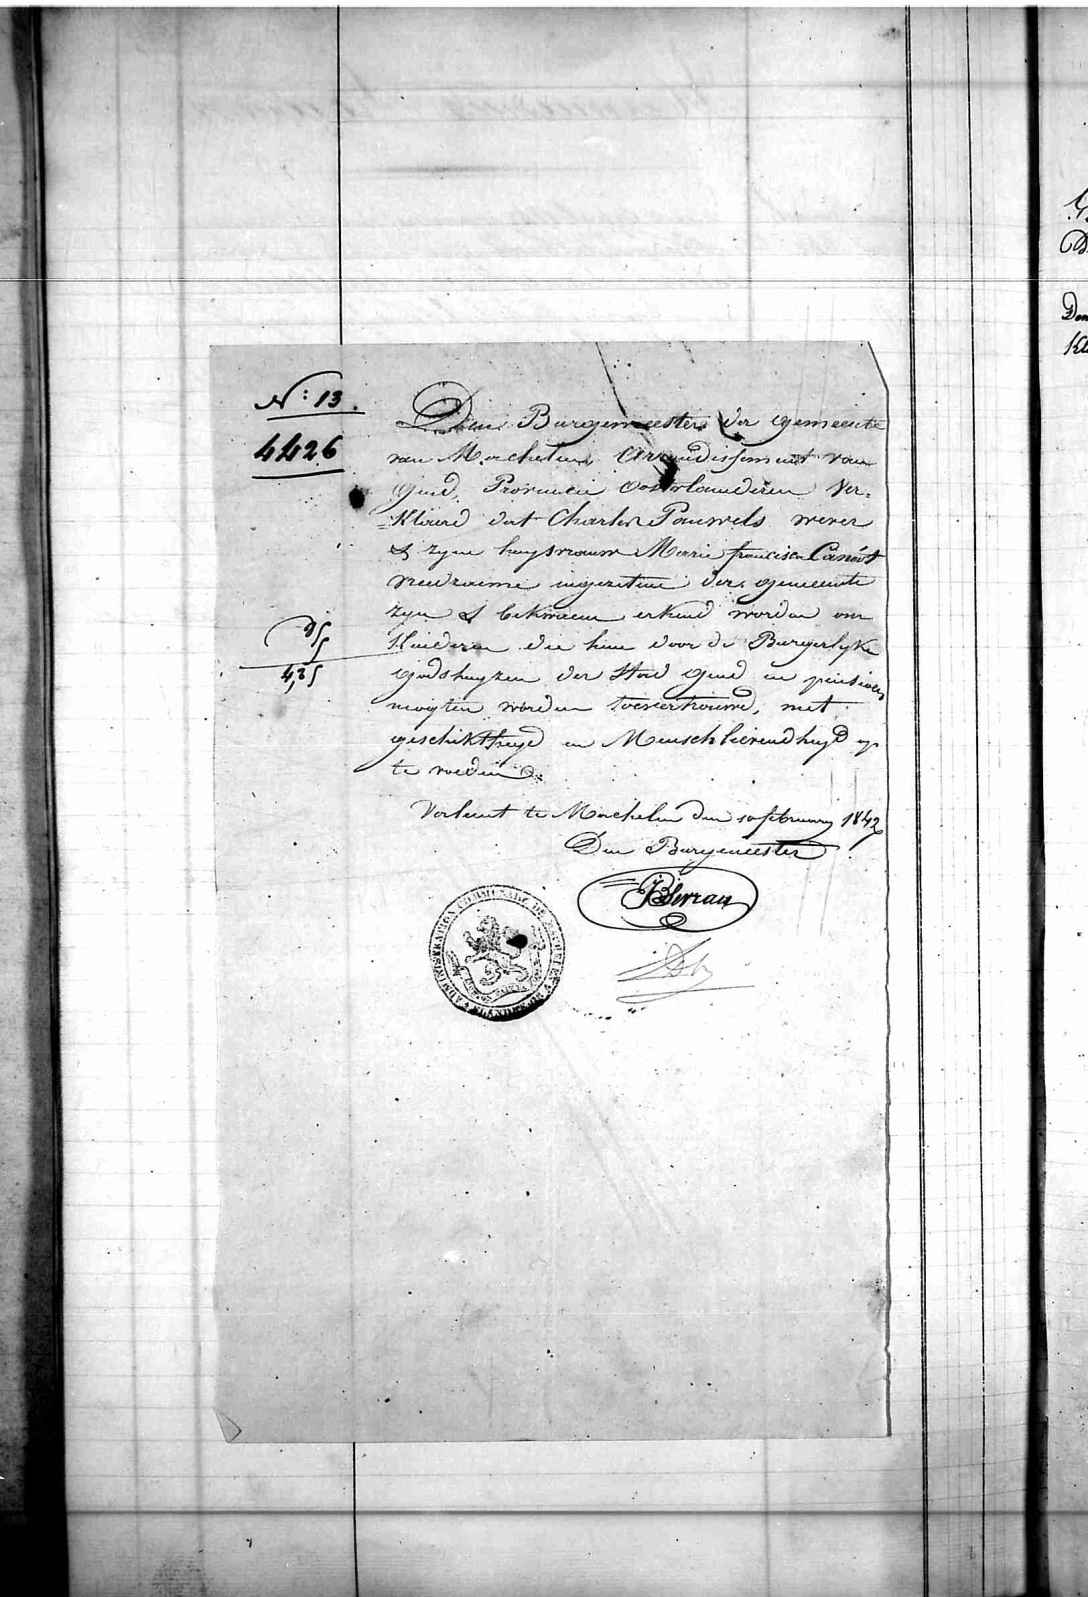 N: 13.
4426
Den Burgemeester der gemeente
van Machelen Arrondissement van
Gend, Provincie Oostvlaenderen Ver=
=Klaerd dat Charles Pauwels wever
& zyne huysvrauw Marie francisca Canoot
ingezetene dezer gemeente
zyn & bekwaem erkend worden om
Kinderen die hun door de Burgerlyke
Godshuyzen der Stad Gend in pensioen
mogten worden toevertrouwd, met
geschiktheyd en Menschlievendheyd op
te voeden.
4,25
Verleent te Machelen den 10 february 1842
Den Burgemeester
ADMINISTRATION COMMUNALE DE
FLANDRE